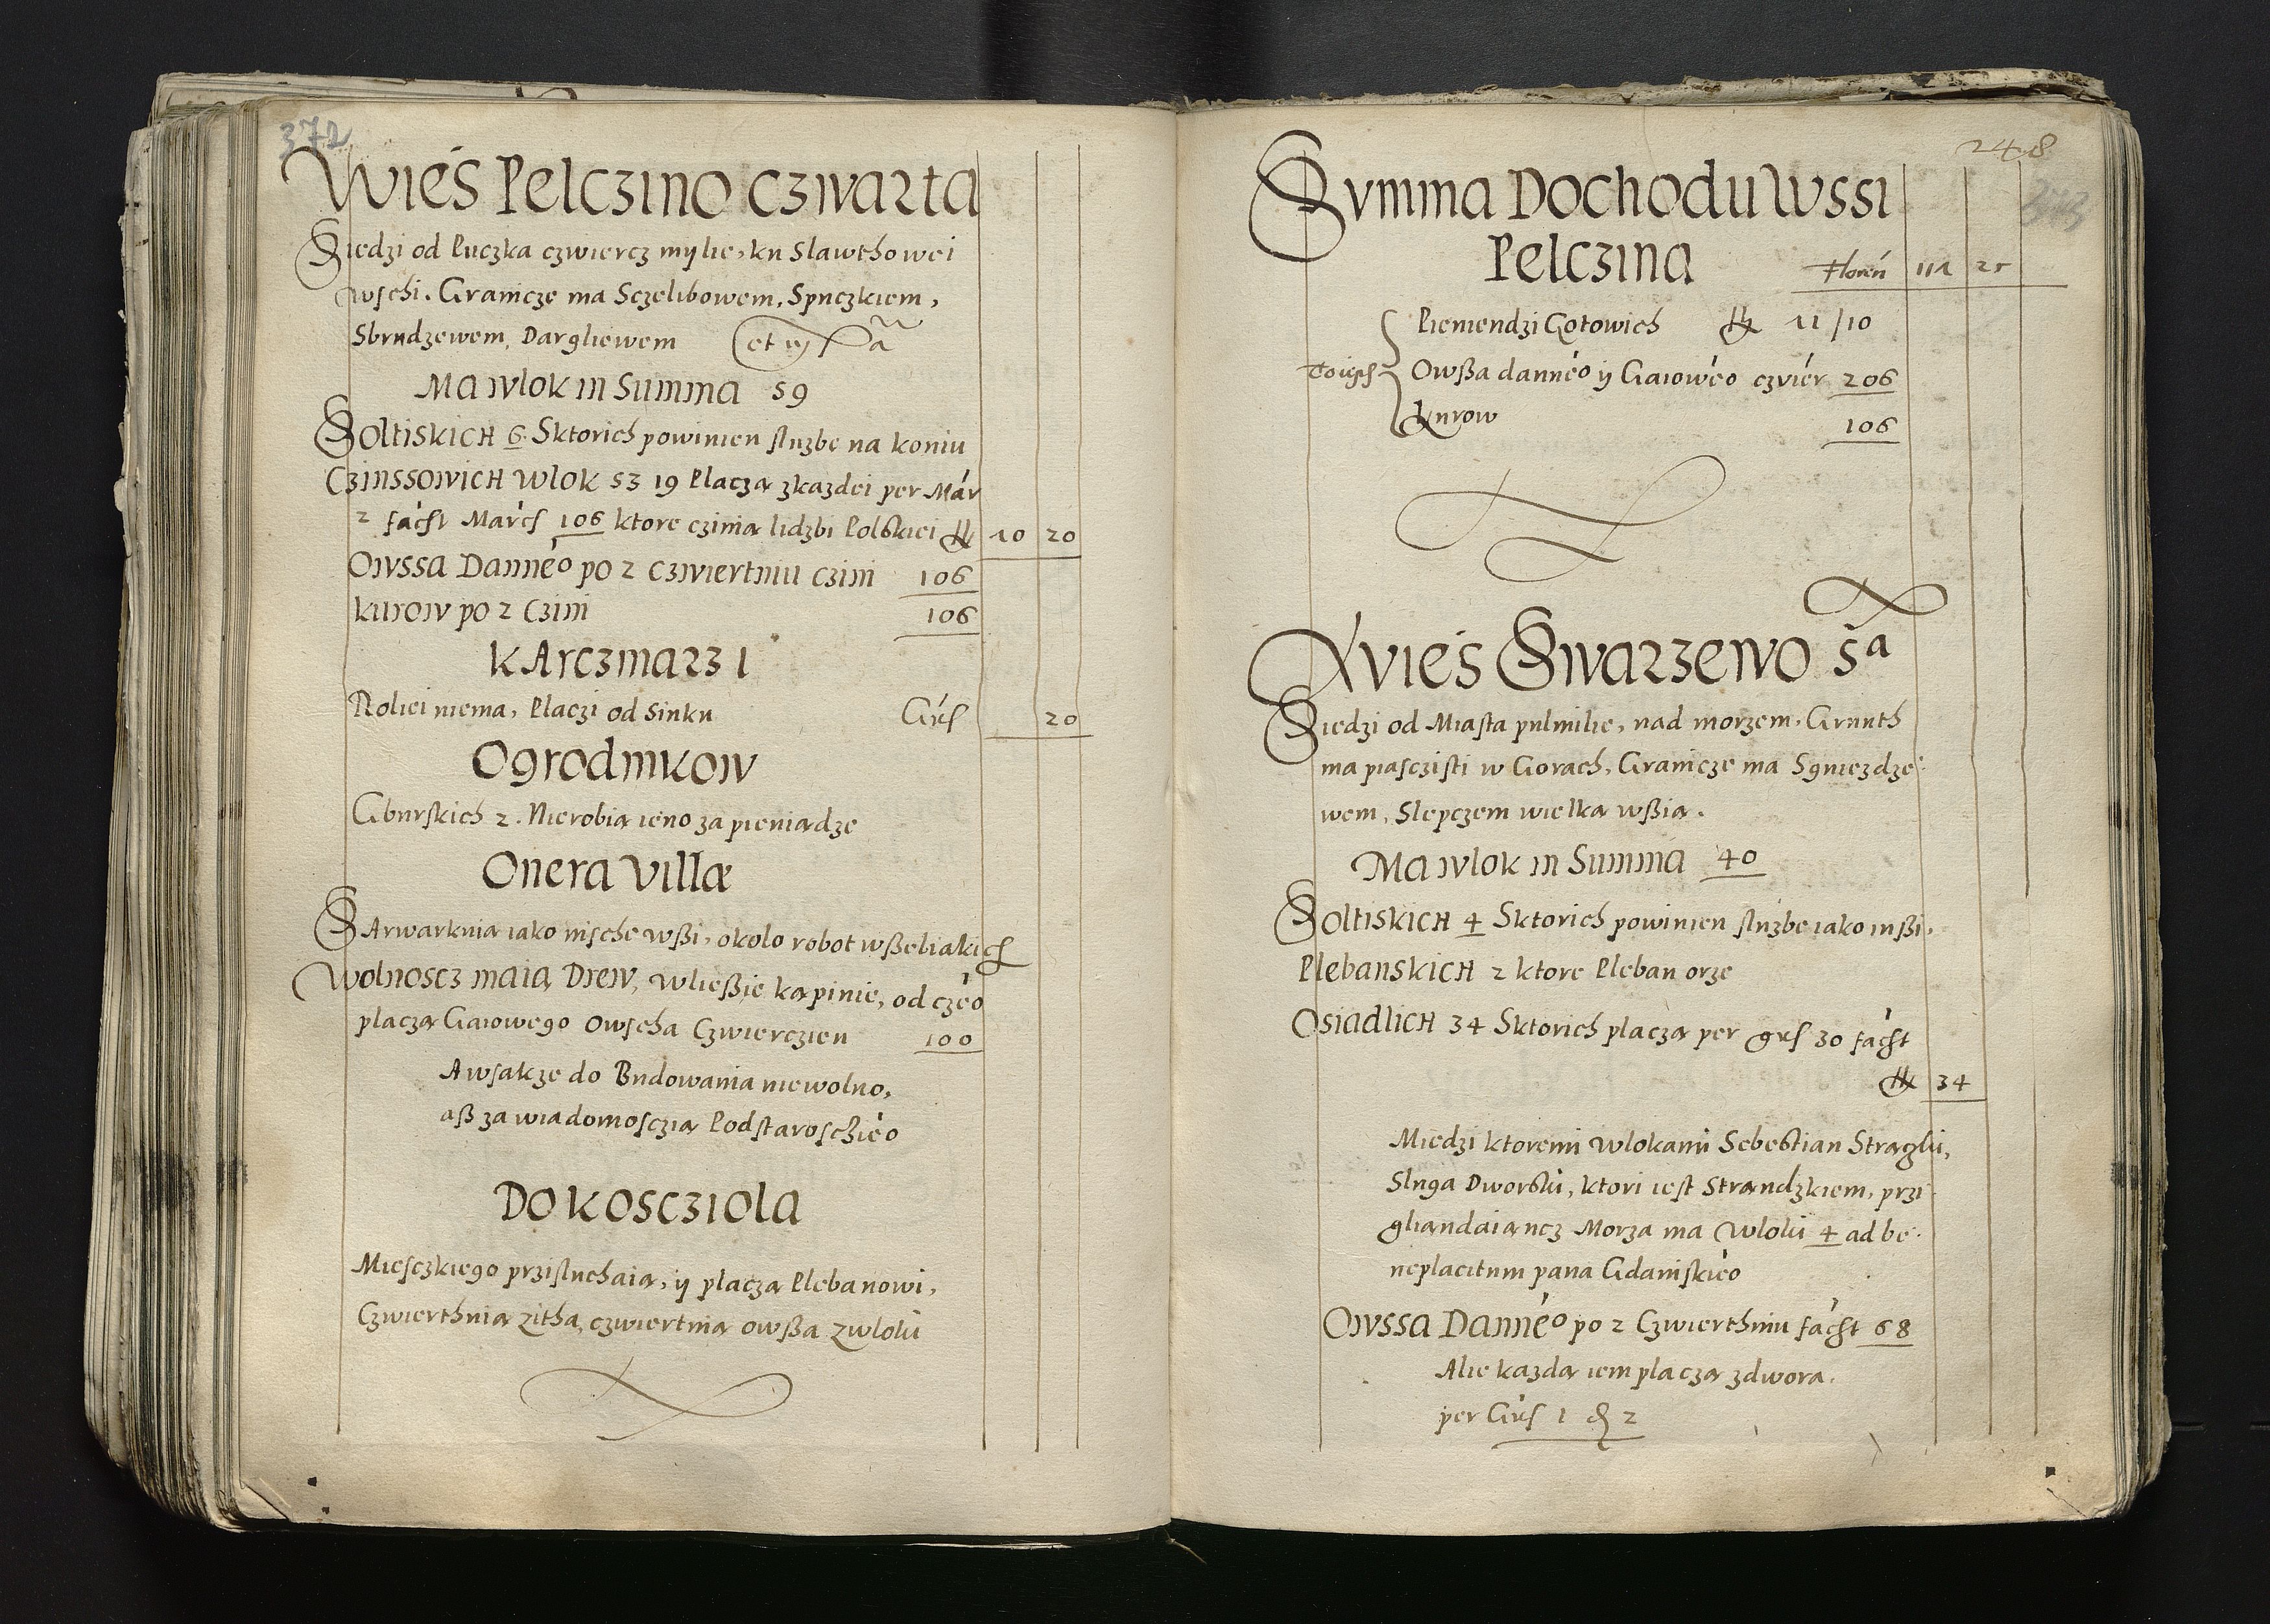 372
Wieś Pelczino Czwarta
Siedzi od Puczka czwiercz mylie, ku Slawthowei
wschi. Granicze ma Sczelibowem, Spuczkiem,
Sbrudzewem, Dargliewem
Ma wlok in Summa 59
Soltiskich 6 Sktorich powinien służbe na koniu
Czinssowich wlok 53 19 Placzą zkazdei per Mar
2 facst Marcs 106 ktore czinią lidzbi Polskiei 10 20
Owssa Dannéo po 2 Czwiertniu Czini 106
kurow po 2 Czini 106
KArczmarz 1
Roliei niema, Placzi od Sinku Grs 20
Ogrodnikow
Gburskich 2. Nierobią ieno za pieniądze
Onera Villæ
SArwarkuią iako insche wßi, okolo robot wßeliakich
Wolnoscz maią Drew, wließie kąpinie, od czéo
placzą Gaiowego Owscha Czwierczien 100
Awsakze do Budowania niewolno,
aß za wiadomosczią Podstaroschiéo
Do Kosciola
Miesczkiego przisluchaią, ÿ placzą Plebanowi,
Czwierthnią zitha, czwiertnią owßa zwloki
248
Summa Dochodu Wssi
Pelczina Floren 111 25
Pieniendzi Gotowich 11/10
Owßa dannéo ÿ Gaiowéo czwier 206
Kurow 106
Wieś Swarzewo 5a
Siedzi od Miasta pulmilie, nad morzem. Grunth
ma piasczisti w Gorach, Granicze ma Sgniezdze
wem, Slepczem wielką wßią.
Ma wlok in Summa 40
Soltiskich 4 Sktorich powinien służbe iako inßi.
Plebanskich 2 ktore Pleban orze
Osiadlich 34 Sktorich placzą per grs 30 facst
34
Miedzi ktoremi wlokami Sebestian Stragli,
Sluga Dworski, ktori iest Strandzkiem, przi
gliandaiancz Morza ma wloki 4 ad be
neplacitum pana Gdaniskiéo
Owssa Dannéo po 2 Czwierthniu facst 68
Alie kazdą iem placzą zdwora.
per Grs 1 2